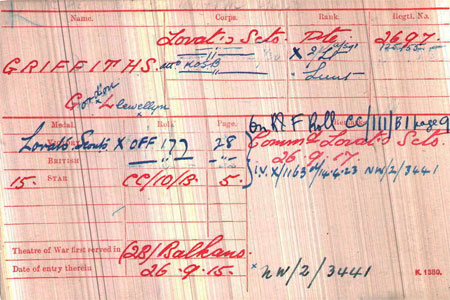 Name. Corps. Rank. Regtl. No.
Lovat's Scts. Pte 2697.
GRIFFITHS. KOSB X 2/Lt
Lieut
Gordon Llewellyn
Medal. Roll. Page.
on R F Roll CC/III/B1 page 9
Lovats Scouts X OFF 172 28
Commd Lovat's Scts.
British
26.9.17.
15. STAR CC/10/B. 5.
I.V. X/1163 14.4.23 NW/2/3441
Theatre of War first served in (2B) Balkans
Date of entry therein 26.9.15.
x NW/2/3441
K. 1380.